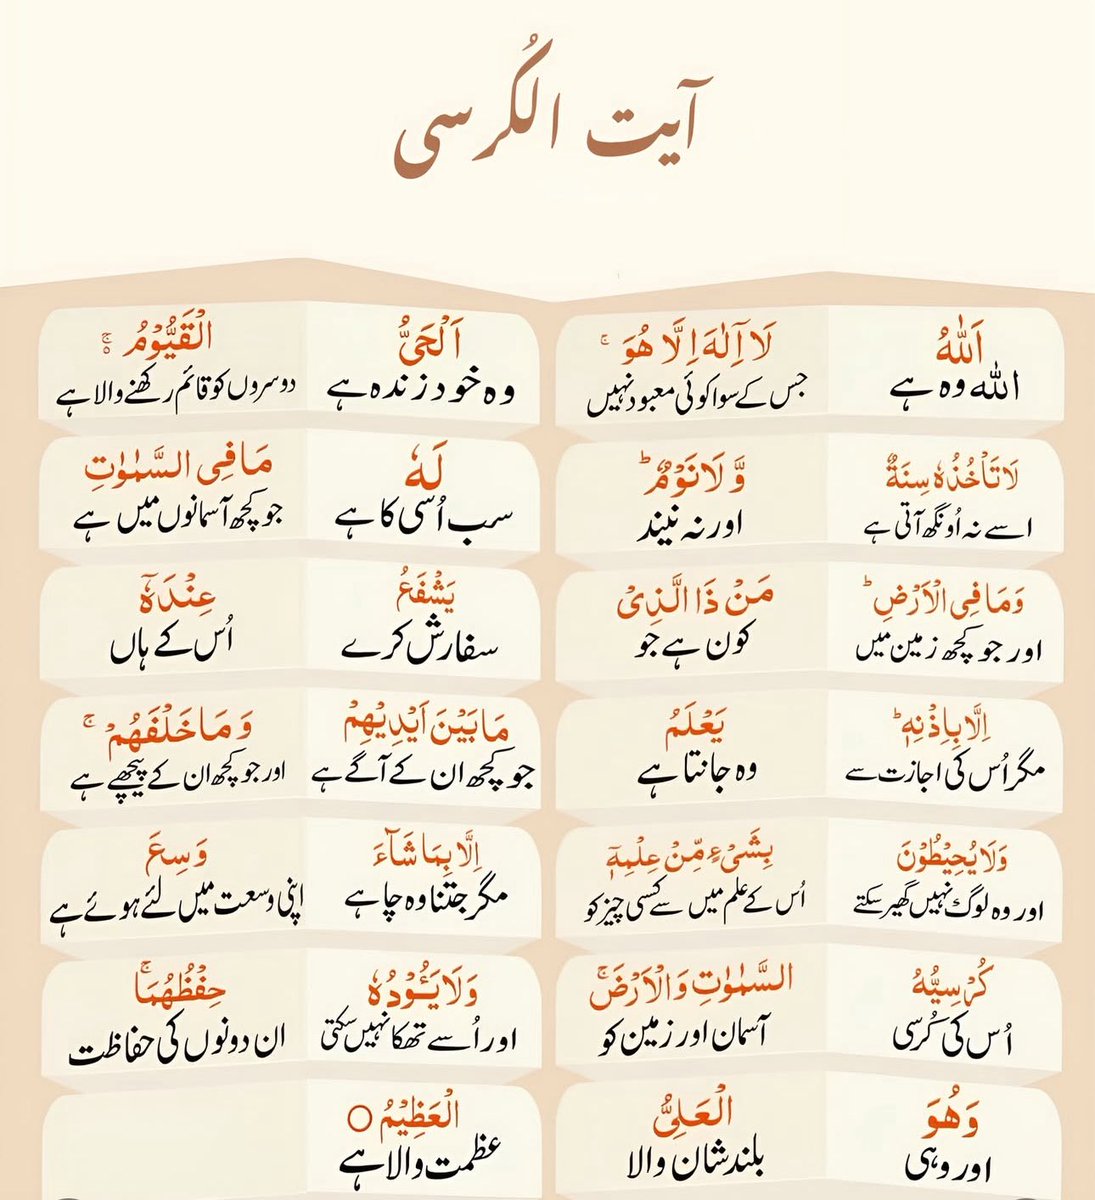 آیت الکُرسی
اَللّٰهُ
اللہ وہ ہے
لَاۤ اِلٰهَ اِلَّا هُوَ ۚ
جس کے سوا کوئی معبود نہیں
اَلْحَیُّ
وہ خود زندہ ہے
الْقَیُّوْمُ ۚ۬
دوسروں کو قائم رکھنے والا ہے
لَا تَاْخُذُهٗ سِنَةٌ
اسے نہ اُونگھ آتی ہے
وَّ لَا نَوْمٌ ؕ
اور نہ نیند
لَهٗ
سب اُسی کا ہے
مَا فِی السَّمٰوٰتِ
جو کچھ آسمانوں میں ہے
وَمَا فِی الْاَرْضِ ؕ
اور جو کچھ زمین میں
مَنْ ذَا الَّذِیْ
کون ہے جو
یَشْفَعُ
سفارش کرے
عِنْدَهٗۤ
اُس کے ہاں
اِلَّا بِاِذْنِهٖ ؕ
مگر اُس کی اجازت سے
یَعْلَمُ
وہ جانتا ہے
مَا بَیْنَ اَیْدِیْهِمْ
جو کچھ ان کے آگے ہے
وَ مَا خَلْفَهُمْ ۚ
اور جو کچھ ان کے پیچھے ہے
وَلَا یُحِیْطُوْنَ
اور وہ لوگ نہیں گھیر سکتے
بِشَیْءٍ مِّنْ عِلْمِهٖۤ
اُس کے علم میں سے کسی چیز کو
اِلَّا بِمَا شَآءَ
مگر جتنا وہ چاہے
وَسِعَ
اپنی وسعت میں لئے ہوئے ہے
كُرْسِیُّهُ
اُس کی کُرسی
السَّمٰوٰتِ وَ الْاَرْضَ ۚ
آسمان اور زمین کو
وَلَا یَـُٔوْدُهٗ
اور اُسے تھکا نہیں سکتی
حِفْظُهُمَا ۚ
ان دونوں کی حفاظت
وَهُوَ
اور وہی
الْعَلِیُّ
بلند شان والا
الْعَظِیْمُ ○
عظمت والا ہے